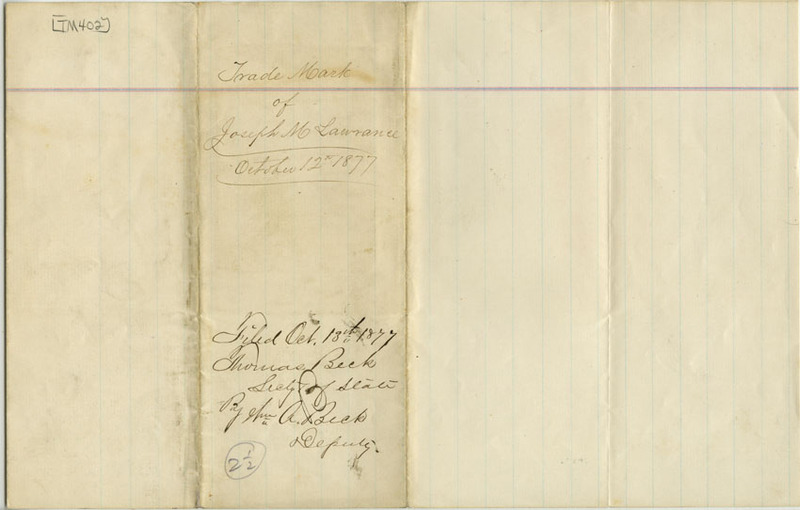 [TM402]
Trade Mark
of
Joseph M Lawrance
October 12th 1877
Filed Oct. 13th 1877
Thomas Beck
Secty of State
By Wm A. Beck
Deputy.
2 1/2